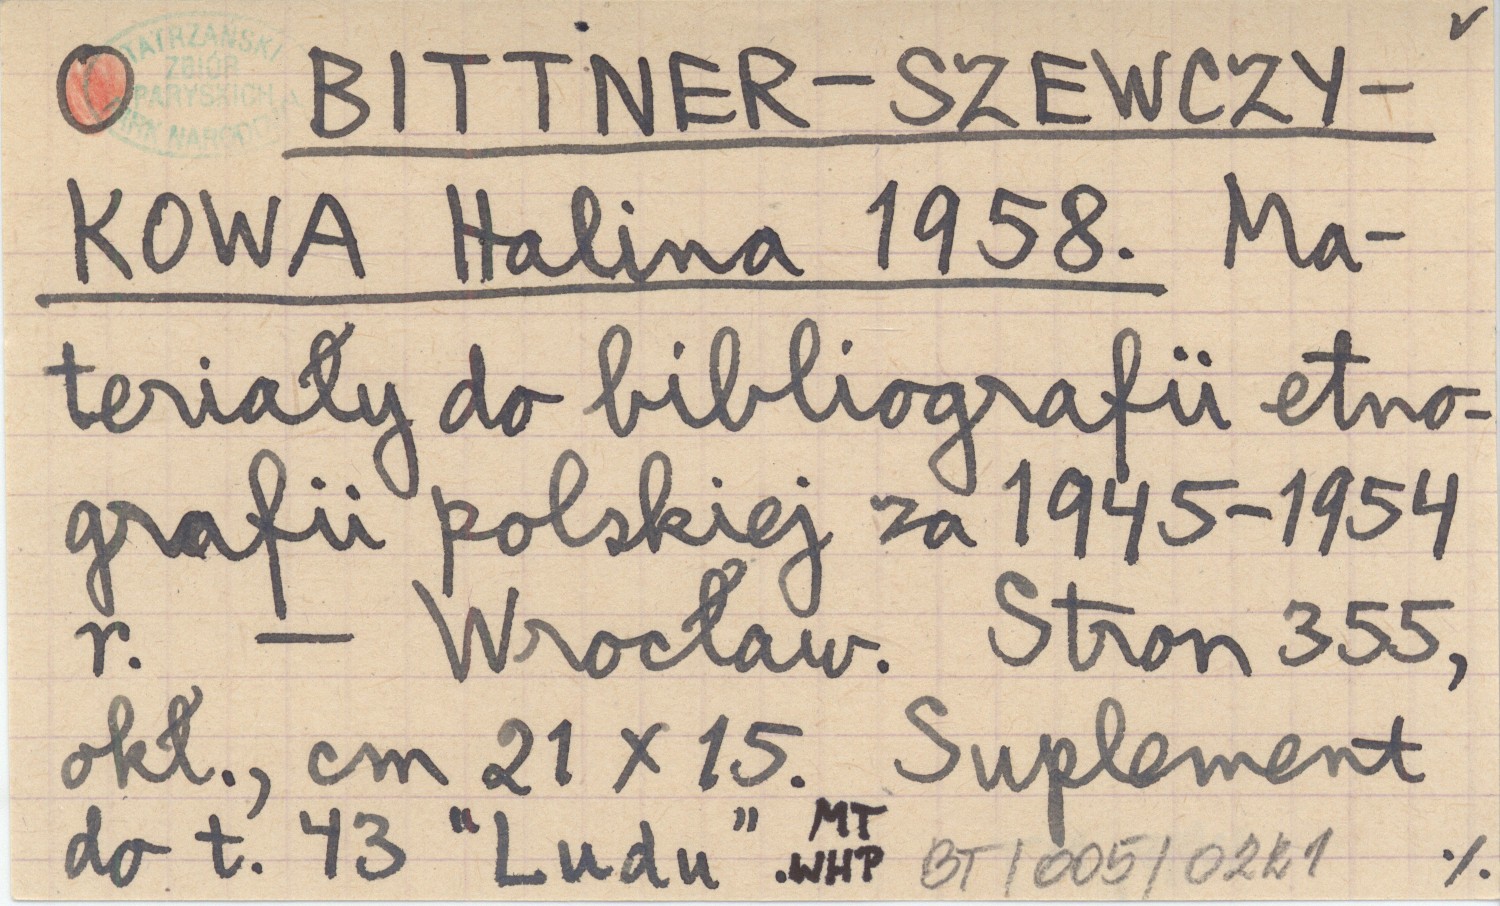 ✓
TATRZAŃSKI
ZBIÓR
PARYSKICH
BITTNER-SZEWCZY-
KOWA Halina 1958. Ma-
teriały do bibliografii etno-
grafii polskiej za 1945-1954
r. — Wrocław. Stron 355,
okł., cm 21 x 15. Suplement
do t. 43 "Ludu".
MT
WHP
BT/005/0221
·/.